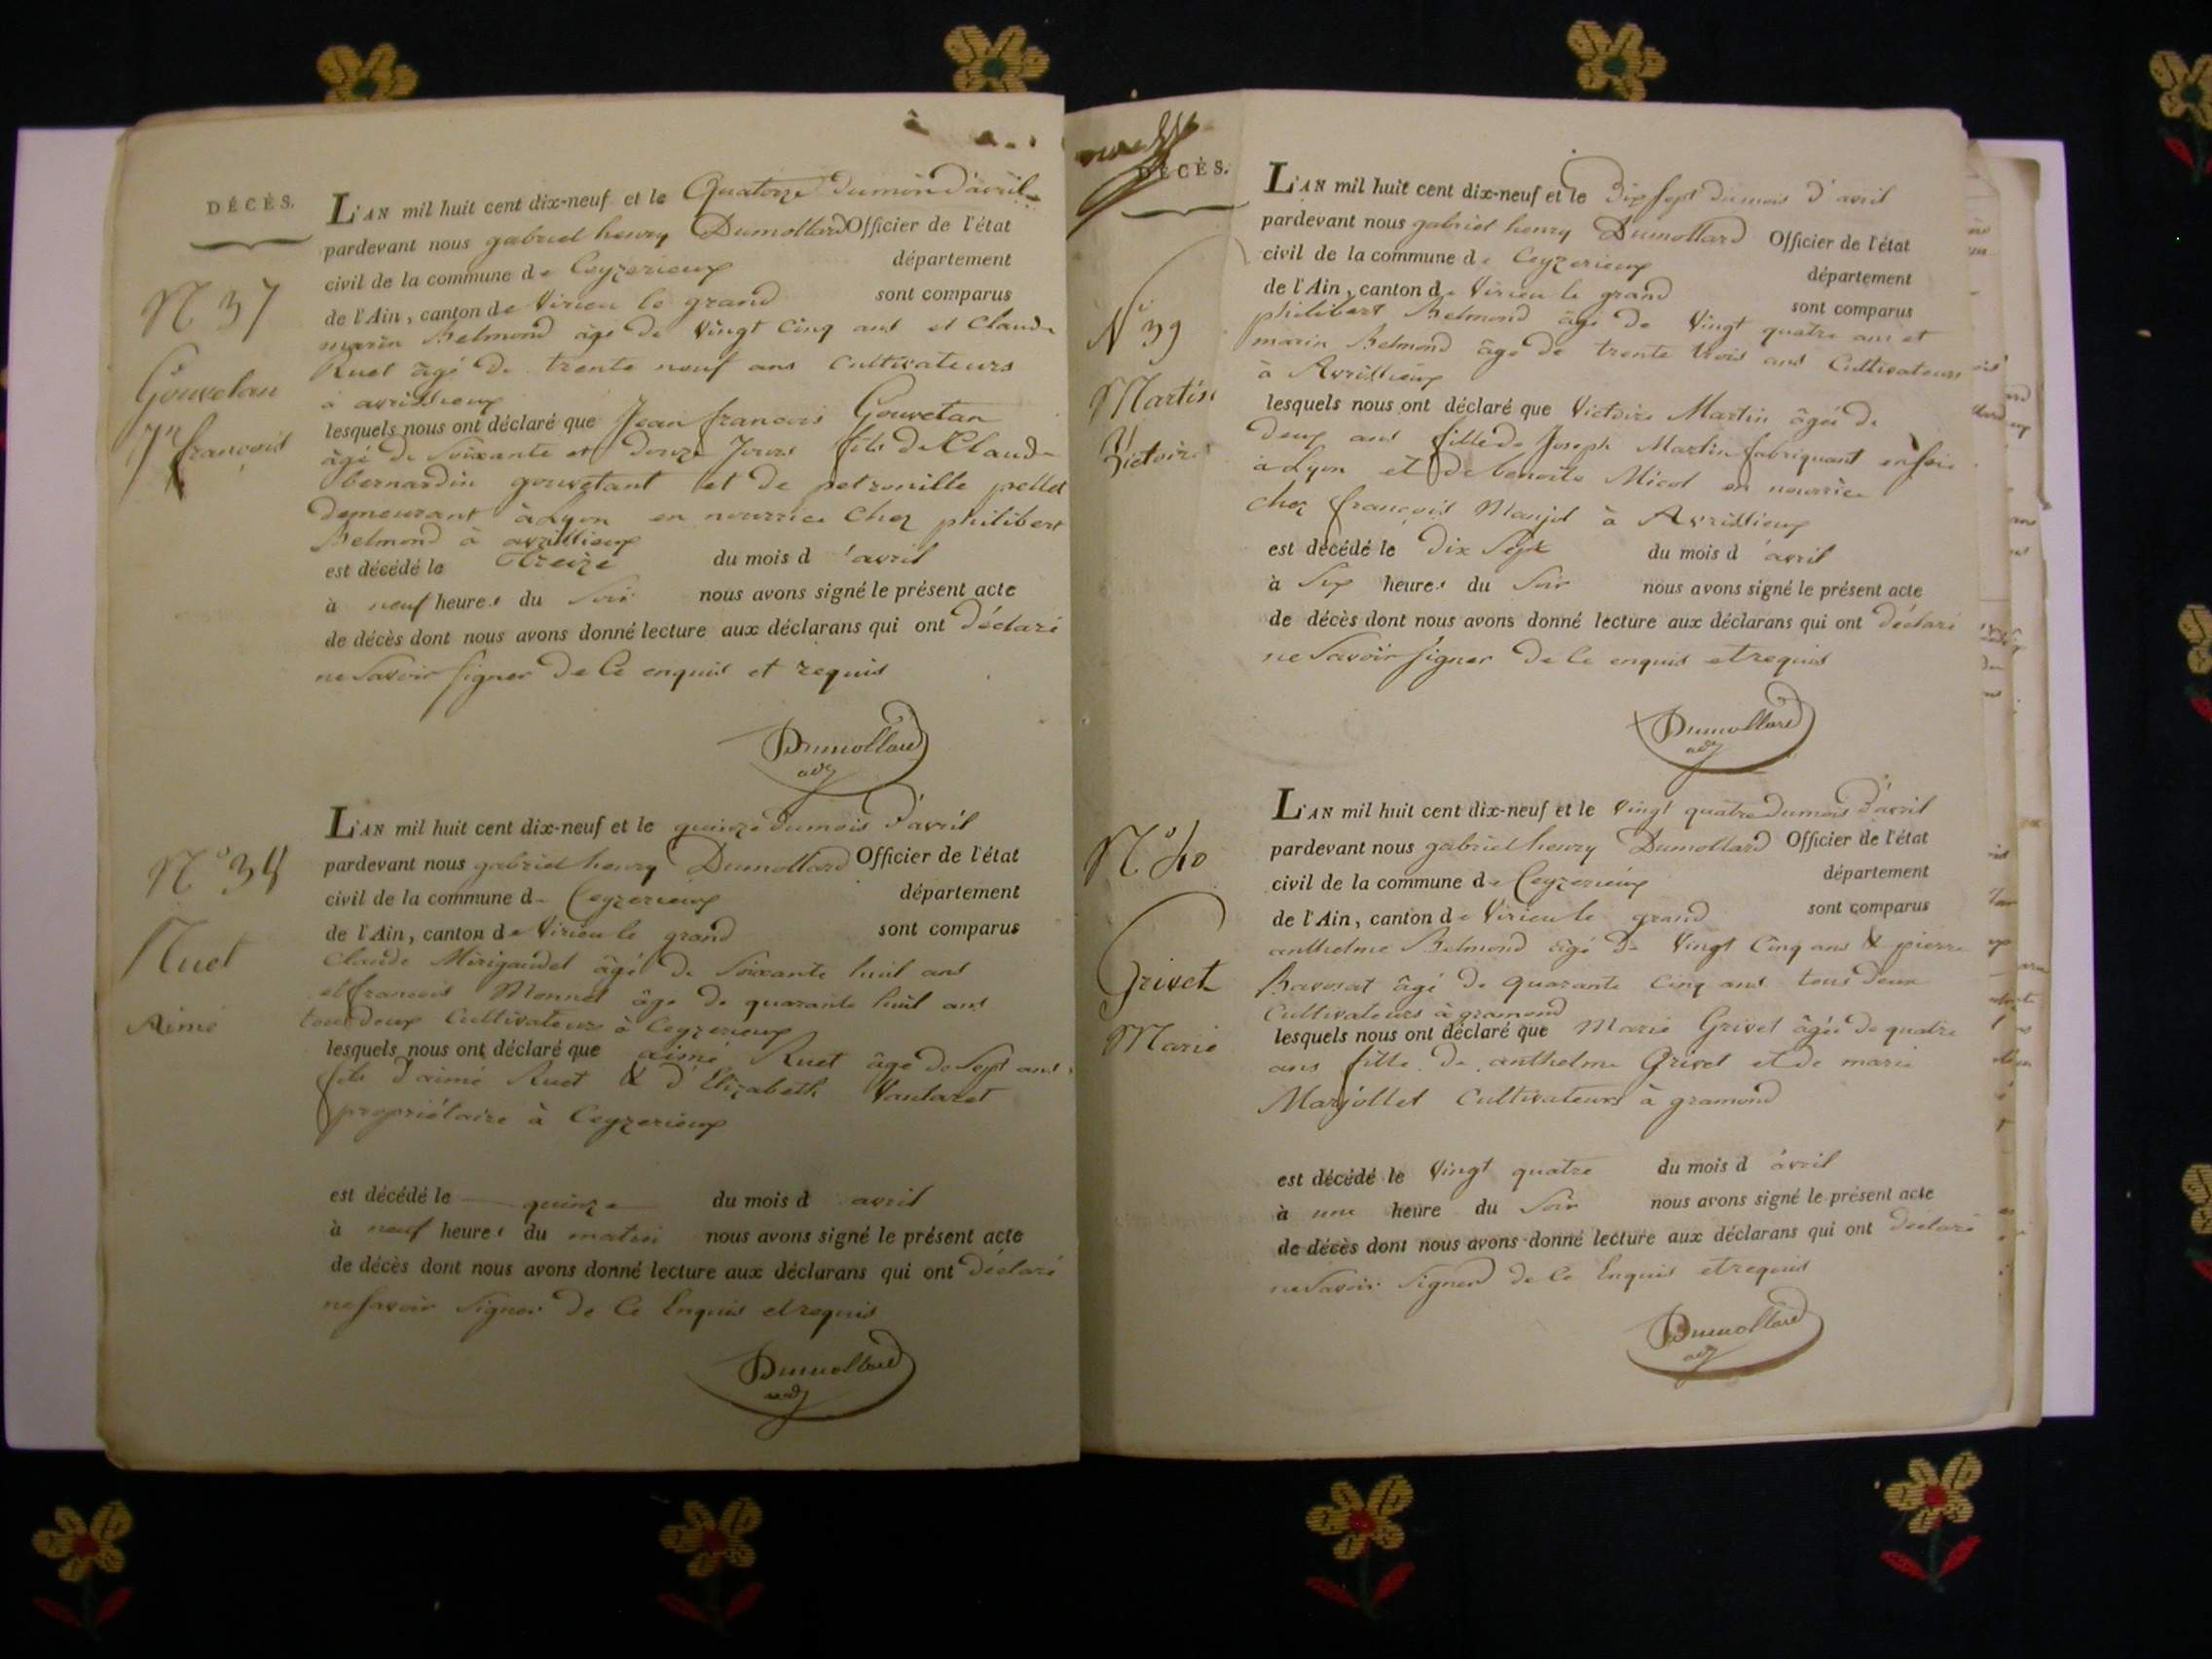 DÉCÈS.
N 37
Gouvetan
Jn françois
L'AN mil huit cent dix-neuf et le Quatorze du mois d'avril
pardevant nous gabriel henry Dumollard Officier de l'état
civil de la commune de Ceyzerieux département
de l'Ain, canton de Virieu le grand sont comparus
marin Belmond âgé de Vingt Cinq ans et Claude
Ruet âgé de trente neuf ans Cultivateurs
à avrissieux
lesquels nous ont déclaré que Jean francois Gouvetan
âgé de Soixante et douze Jours fils de Claude
bernardin gouvetant et de petronille pellet
demeurant à Lyon en nourrice Chez philibert
Belmond à avrissieux
est décédé le Treize du mois d'avril
à neuf heures du Soir nous avons signé le présent acte
de décès dont nous avons donné lecture aux déclarans qui ont déclaré
ne Savoir signer de Ce enquis et requis
Dumollard
adj
N° 38
Ruet
Aimé
L'AN mil huit cent dix-neuf et le quinze du mois d'avril
pardevant nous gabriel henry Dumollard Officier de l'état
civil de la commune de Ceyzerieux département
de l'Ain, canton de Virieu le grand sont comparus
Claude Mirigaudet âgé de Soixante huit ans
et francois Monnet âge de quarante huit ans
tous deux Cultivateurs à Ceyzerieux
lesquels nous ont déclaré que aimé Ruet âge de Sept ans
fils d'aimé Ruet & d'Elizabeth Vautaret
propriétaire à Ceyzerieux
est décédé le quinze du mois d avril
à neuf heures du matin nous avons signé le présent acte
de décès dont nous avons donné lecture aux déclarans qui ont déclaré
ne savoir Signer de Ce Enquis et requis
Dumollard
adj
DÉCÈS.
N° 39
Martin
Victoire
L'AN mil huit cent dix-neuf et le Dix sept du mois d'avril
pardevant nous gabriel henry Dumollard Officier de l'état
civil de la commune de Ceyzerieux département
de l'Ain, canton de Virieu le grand sont comparus
philibert Belmond âgé de Vingt quatre ans et
marin Belmond âge de trente trois ans Cultivateurs
à Avrissieux
lesquels nous ont déclaré que Victoire Martin âgée de
Deux ans fille de Joseph Martin fabriquant en soie
à Lyon et de benoite Micol en nourrice
chez françois Manjot à Avrissieux
est décédé le Dix Sept du mois d'avril
à Six heures du Soir nous avons signé le présent acte
de décès dont nous avons donné lecture aux déclarans qui ont déclaré
ne Savoir signer de Ce enquis et requis
Dumollard
adj
N° 40
Grivet
Marie
L'AN mil huit cent dix-neuf et le Vingt quatre du mois d'avril
pardevant nous gabriel henry Dumollard Officier de l'état
civil de la commune de Ceyzerieux département
de l'Ain, canton de Virieu le grand sont comparus
anthelme Belmond âgé de Vingt Cinq ans & pierre
Bavosat âgé de quarante Cinq ans tous deux
Cultivateurs à gramond
lesquels nous ont déclaré que Marie Grivet âgée de quatre
ans fille de anthelme Grivet et de marie
Marjollet Cultivateurs à gramond
est décédé le Vingt quatre du mois d avril
à une heure du Soir nous avons signé le présent acte
de décès dont nous avons donné lecture aux déclarans qui ont déclaré
ne Savoir Signer de Ce Enquis et requis
Dumollard
adj